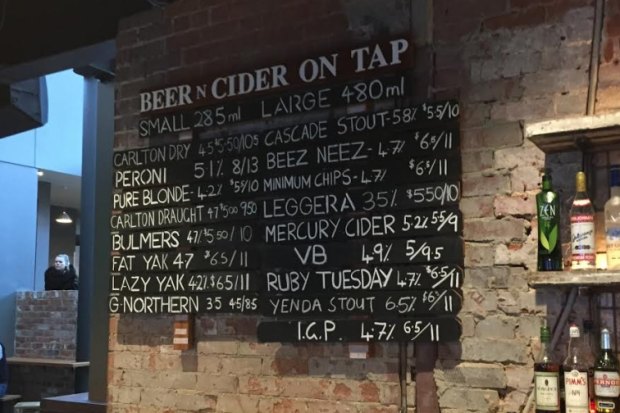 BEER N CIDER ON TAP
SMALL 285ml LARGE 480ml
CARLTON DRY 4.5 $5.50/10.5
PERONI 5.1% 8/13
PURE BLONDE - 4.2% $5.5/10
CARLTON DRAUGHT 4.7 $5.00 9.50
BULMERS 4.7/$5.50/10
FAT YAK 4.7 $6.5/11
LAZY YAK 4.2% $6.5/11
G. NORTHERN 3.5 4.5/8.5
CASCADE STOUT - 5.8% $5.5/10
BEEZ NEEZ - 4.7% $6.5/11
MINIMUM CHIPS - 4.7 $6.5/11
LEGGERA 3.5% $5.50/10
MERCURY CIDER 5.2% 5.5/9
VB 4.9% 5/9.5
RUBY TUESDAY 4.7% $6.5/11
YENDA STOUT 6.5% $6/11
I.C.P. 4.7% 6.5/11
ZEN
PIMM'S